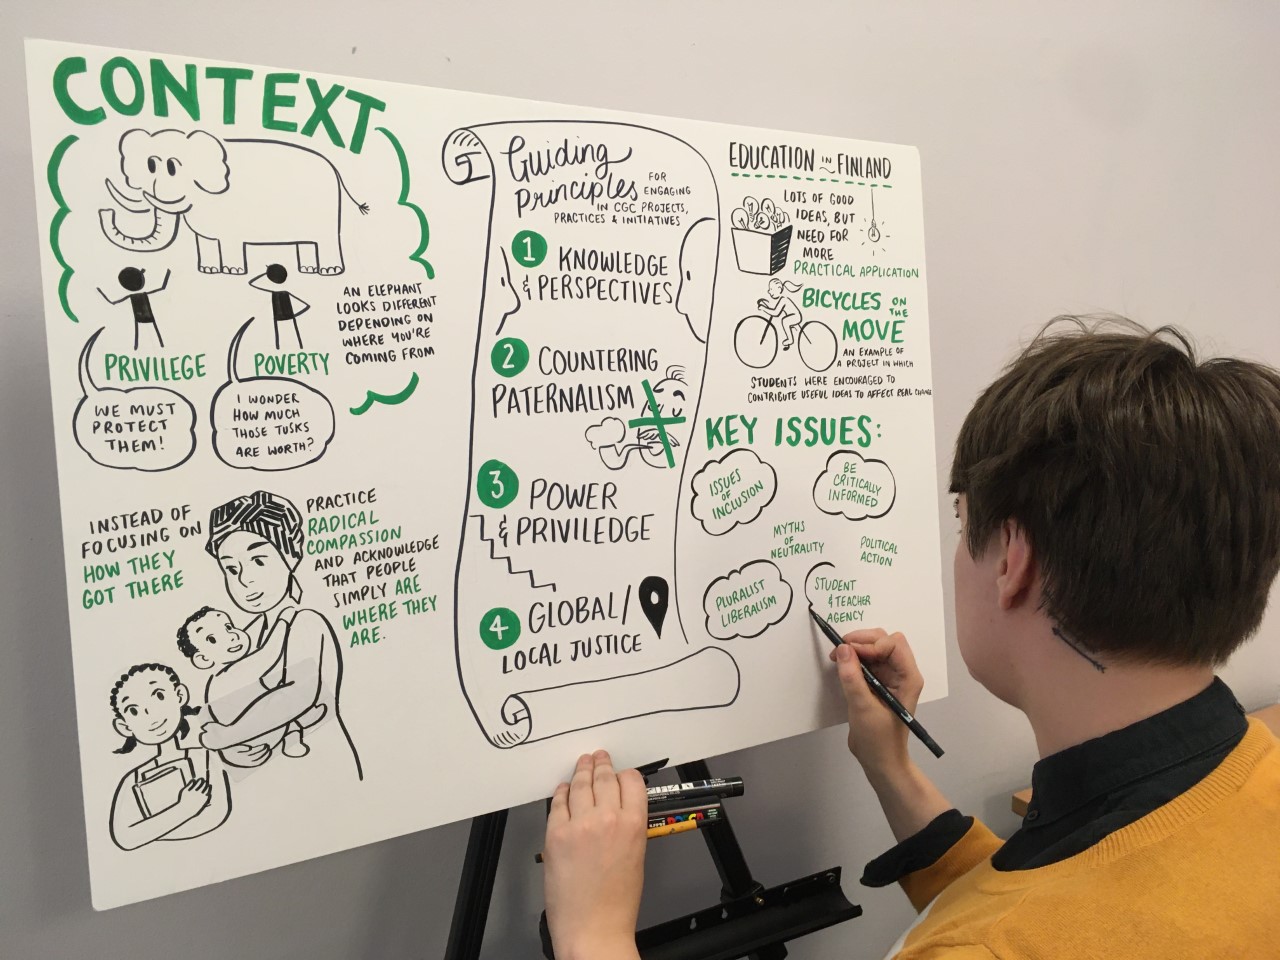 CONTEXT
AN ELEPHANT
LOOKS DIFFERENT
DEPENDING ON
WHERE YOU'RE
COMING FROM
PRIVILEGE
WE MUST
PROTECT
THEM!
POVERTY
I WONDER
HOW MUCH
THOSE TUSKS
ARE WORTH?
INSTEAD OF
FOCUSING ON
HOW THEY
GOT THERE
PRACTICE
RADICAL
COMPASSION
AND ACKNOWLEDGE
THAT PEOPLE
SIMPLY ARE
WHERE THEY
ARE.
Guiding
Principles
FOR
ENGAGING
IN CGC PROJECTS,
PRACTICES & INITIATIVES
1 KNOWLEDGE
& PERSPECTIVES
2 COUNTERING
PATERNALISM
3 POWER
& PRIVILEDGE
4 GLOBAL/
LOCAL JUSTICE
EDUCATION IN FINLAND
LOTS OF GOOD
IDEAS, BUT
NEED FOR
MORE
PRACTICAL APPLICATION
BICYCLES ON THE
MOVE
AN EXAMPLE OF
A PROJECT IN WHICH
STUDENTS WERE ENCOURAGED TO
CONTRIBUTE USEFUL IDEAS TO AFFECT REAL CHANGE
KEY ISSUES:
ISSUES
OF
INCLUSION
BE
CRITICALLY
INFORMED
MYTHS
OF
NEUTRALITY
POLITICAL
ACTION
PLURALIST
LIBERALISM
STUDENT
& TEACHER
AGENCY